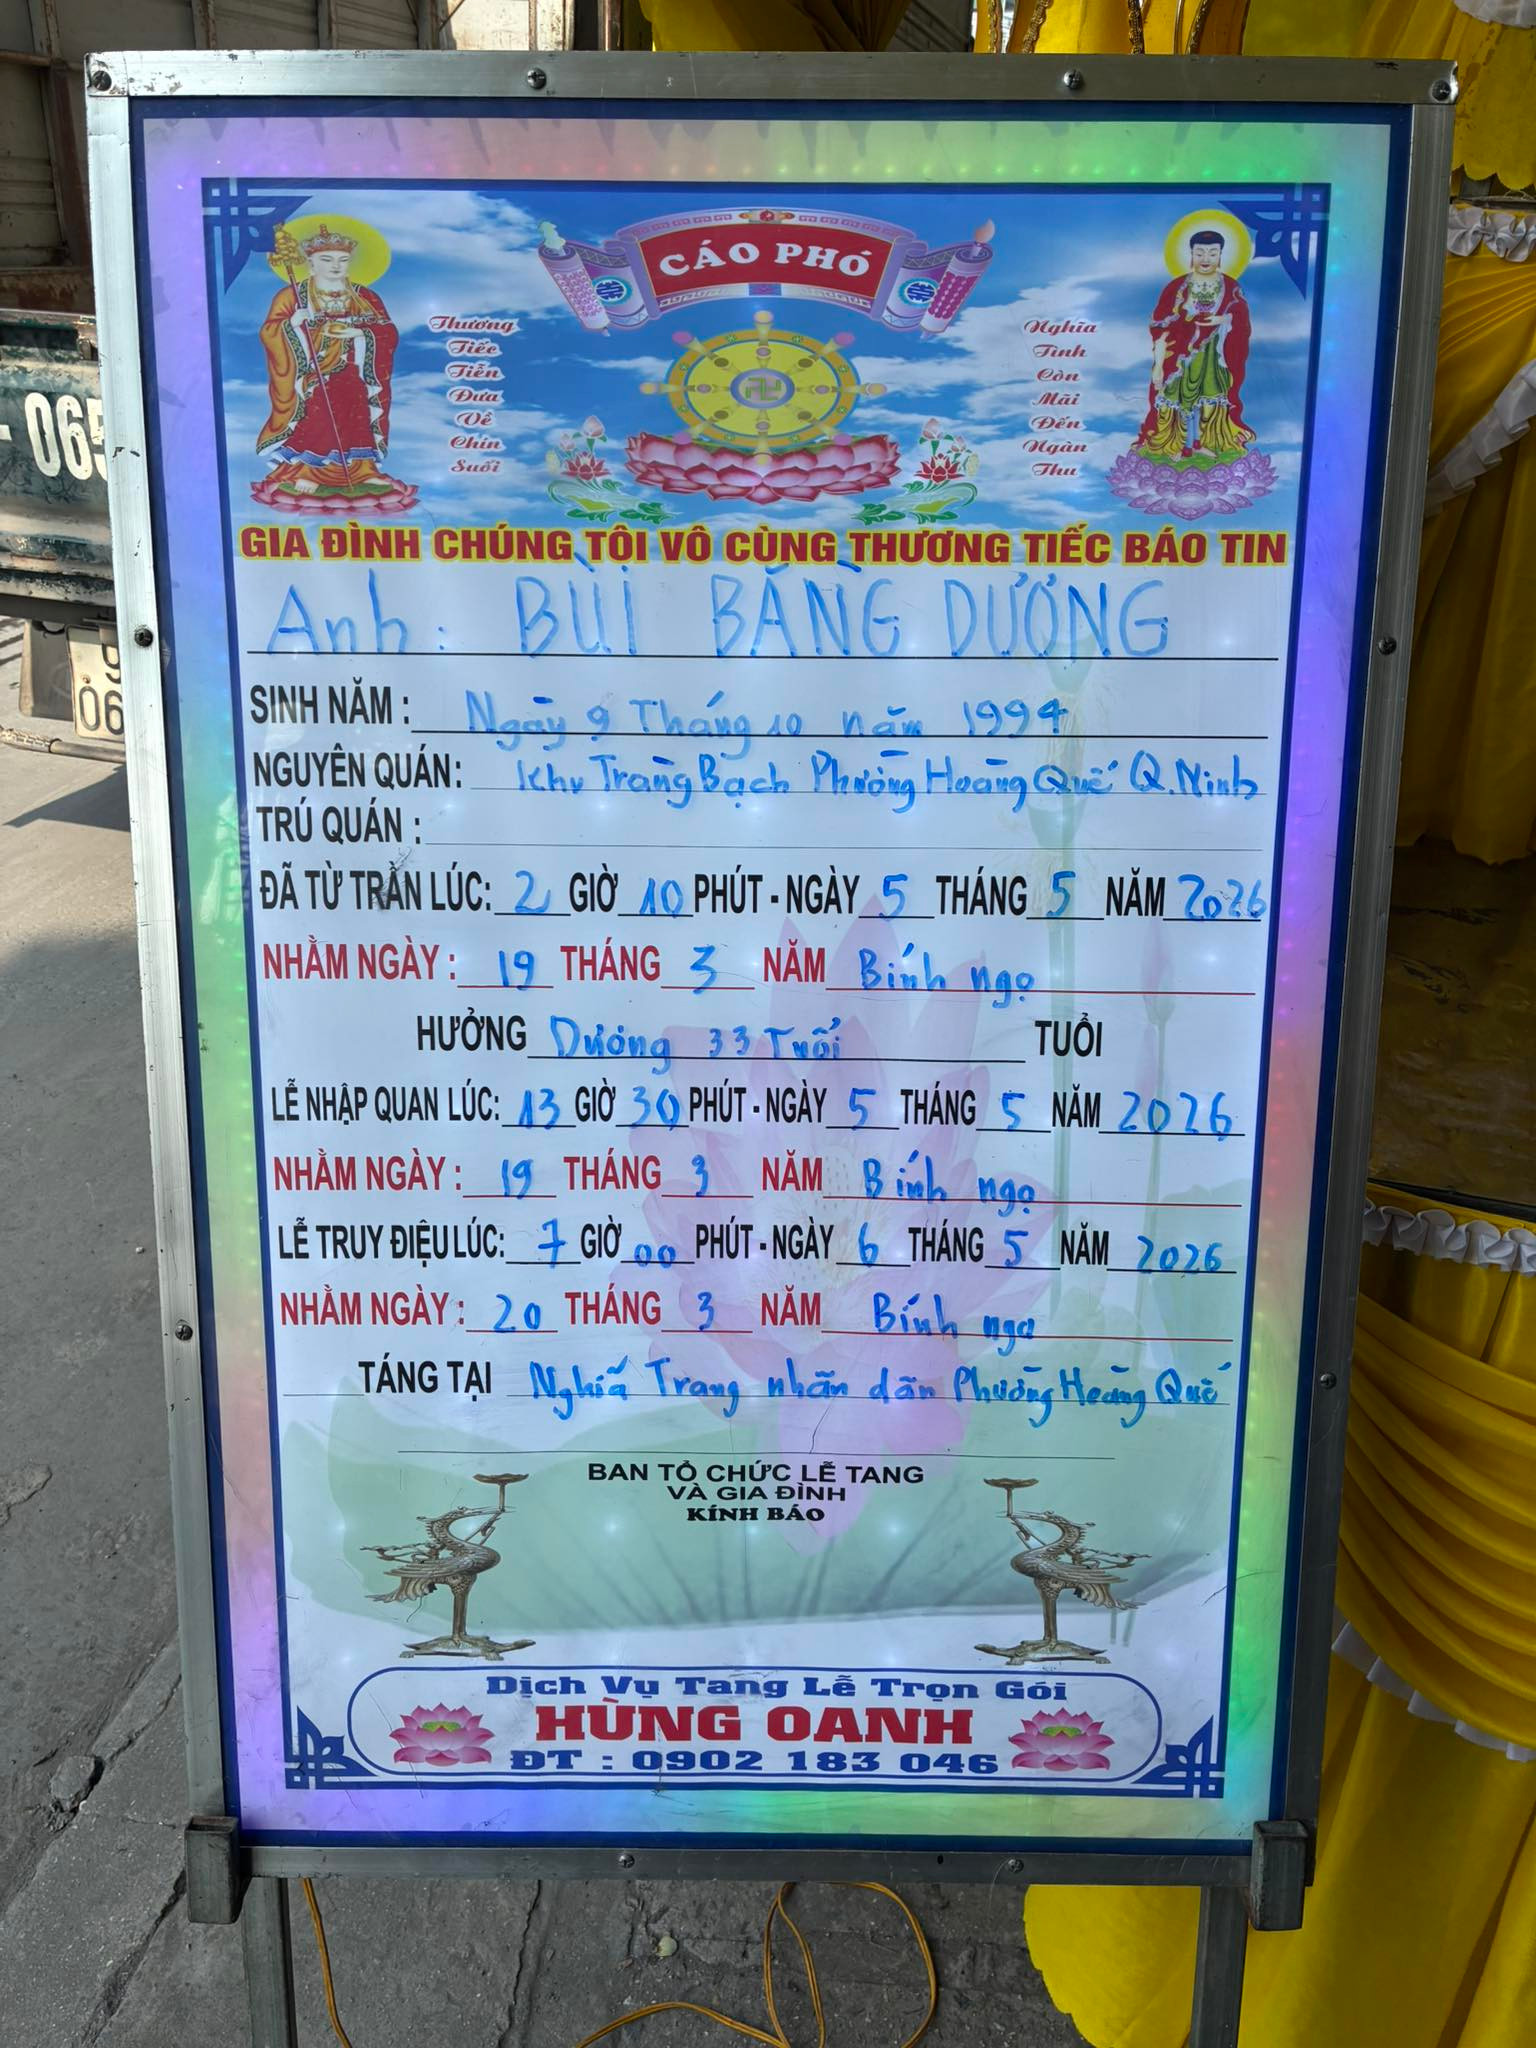 CÁO PHÓ
Thương
Tiếc
Tiễn
Đưa
Về
Chín
Suối
Nghĩa
Tình
Còn
Mãi
Đến
Ngàn
Thu
GIA ĐÌNH CHÚNG TÔI VÔ CÙNG THƯƠNG TIẾC BÁO TIN
Anh: BÙI BẰNG DƯƠNG
SINH NĂM : Ngày 9 Tháng 10 năm 1994
NGUYÊN QUÁN: Khu Tràng Bạch Phường Hoàng Quế Q.Ninh
TRÚ QUÁN :
ĐÃ TỪ TRẦN LÚC: 2 GIỜ 10 PHÚT - NGÀY 5 THÁNG 5 NĂM 2026
NHẰM NGÀY : 19 THÁNG 3 NĂM Bính ngọ
HƯỞNG Dương 33 Tuổi TUỔI
LỄ NHẬP QUAN LÚC: 13 GIỜ 30 PHÚT - NGÀY 5 THÁNG 5 NĂM 2026
NHẰM NGÀY : 19 THÁNG 3 NĂM Bính ngọ
LỄ TRUY ĐIỆU LÚC: 7 GIỜ 00 PHÚT - NGÀY 6 THÁNG 5 NĂM 2026
NHẰM NGÀY : 20 THÁNG 3 NĂM Bính ngọ
TÁNG TẠI Nghĩa Trang nhân dân Phường Hoàng Quế
BAN TỔ CHỨC LỄ TANG
VÀ GIA ĐÌNH
KÍNH BÁO
Dịch Vụ Tang Lễ Trọn Gói
HÙNG OANH
ĐT : 0902 183 046